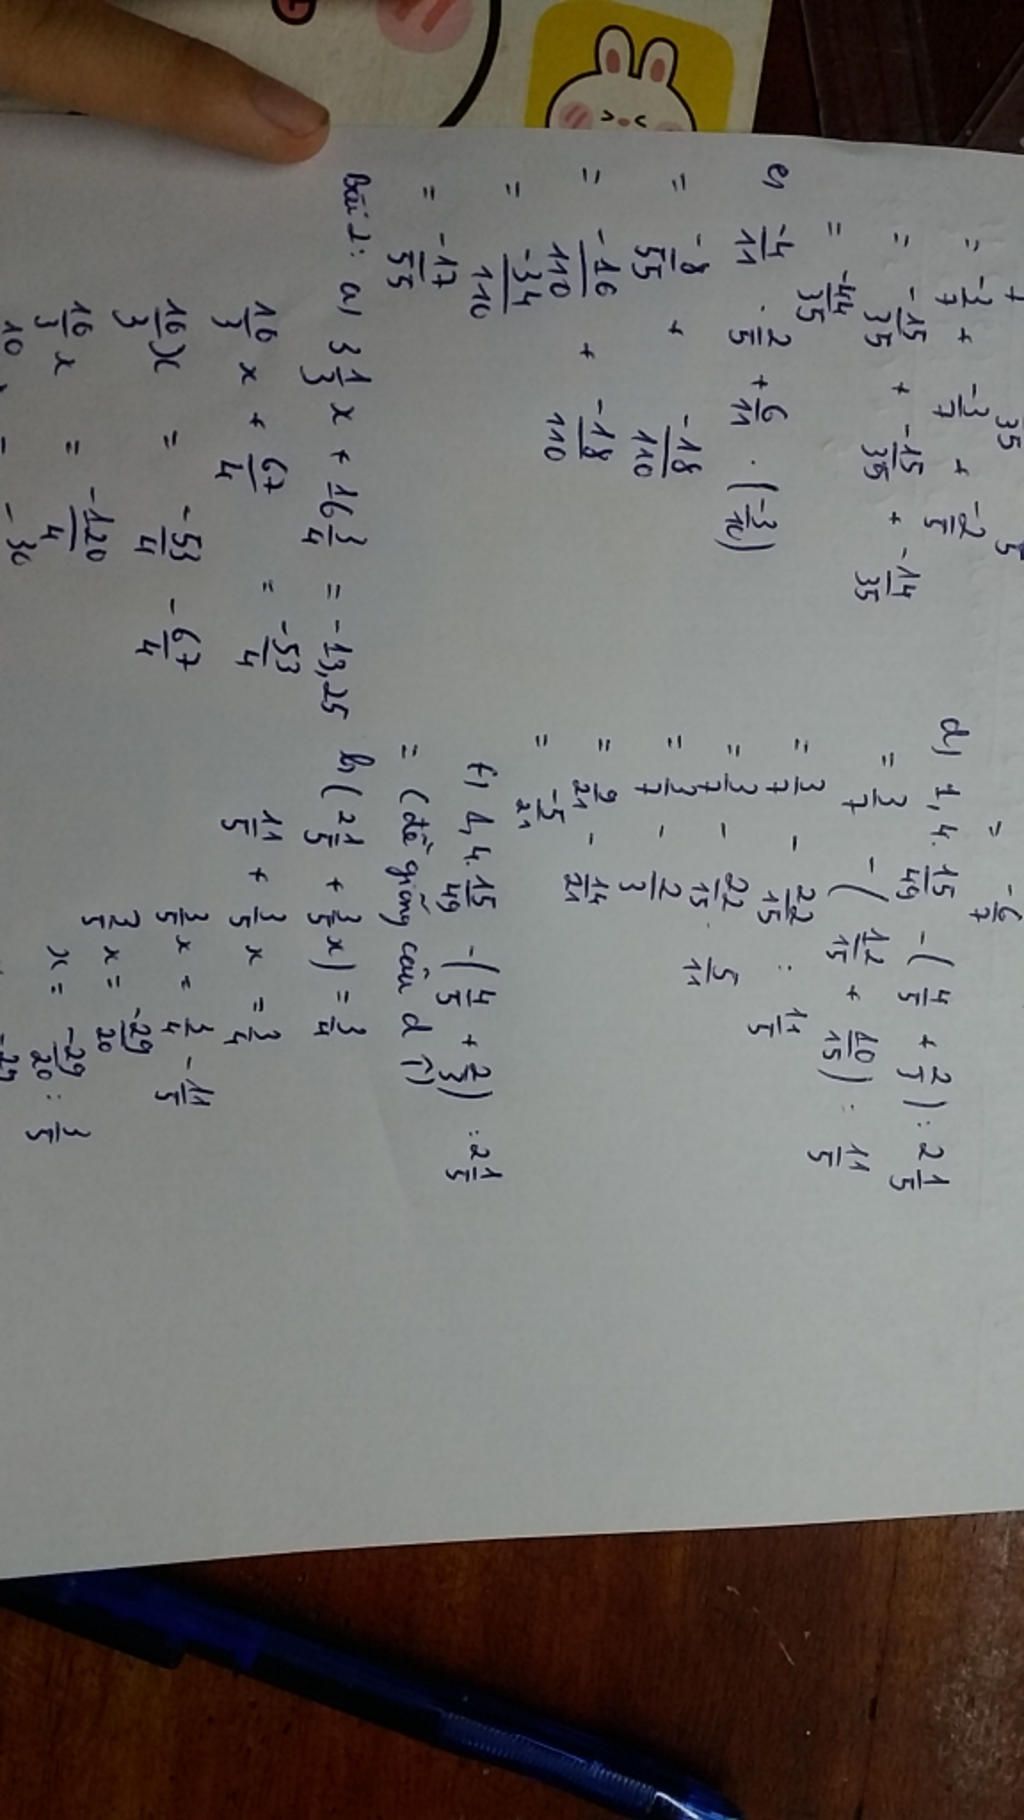 = -3/7 + -3/7 + -2/5
= -15/35 + -15/35 + -14/35
= -44/35
e, -4/11 . 2/5 + 6/11 . (-3/10)
= -8/55 + -18/110
= -16/110 + -18/110
= -34/110
= -17/55
Bài 2: a, 3 1/3 x + 16 3/4 = -13,25
16/3 x + 67/4 = -53/4
16/3 x = -53/4 - 67/4
16/3 x = -120/4
= -30
= -6/7
d, 1,4 . 15/49 - (4/5 + 2/3) : 2 1/5
= 3/7 - (12/15 + 10/15) : 11/5
= 3/7 - 22/15 : 11/5
= 3/7 - 22/15 . 5/11
= 3/7 - 2/3
= 9/21 - 14/21
= -5/21
f, 1,4 . 15/49 - (4/5 + 2/3) : 2 1/5
= (đề giống câu d ạ)
b, (2 1/5 + 3/5 x) = 3/4
11/5 + 3/5 x = 3/4
3/5 x = 3/4 - 11/5
3/5 x = -29/20
x = -29/20 : 3/5